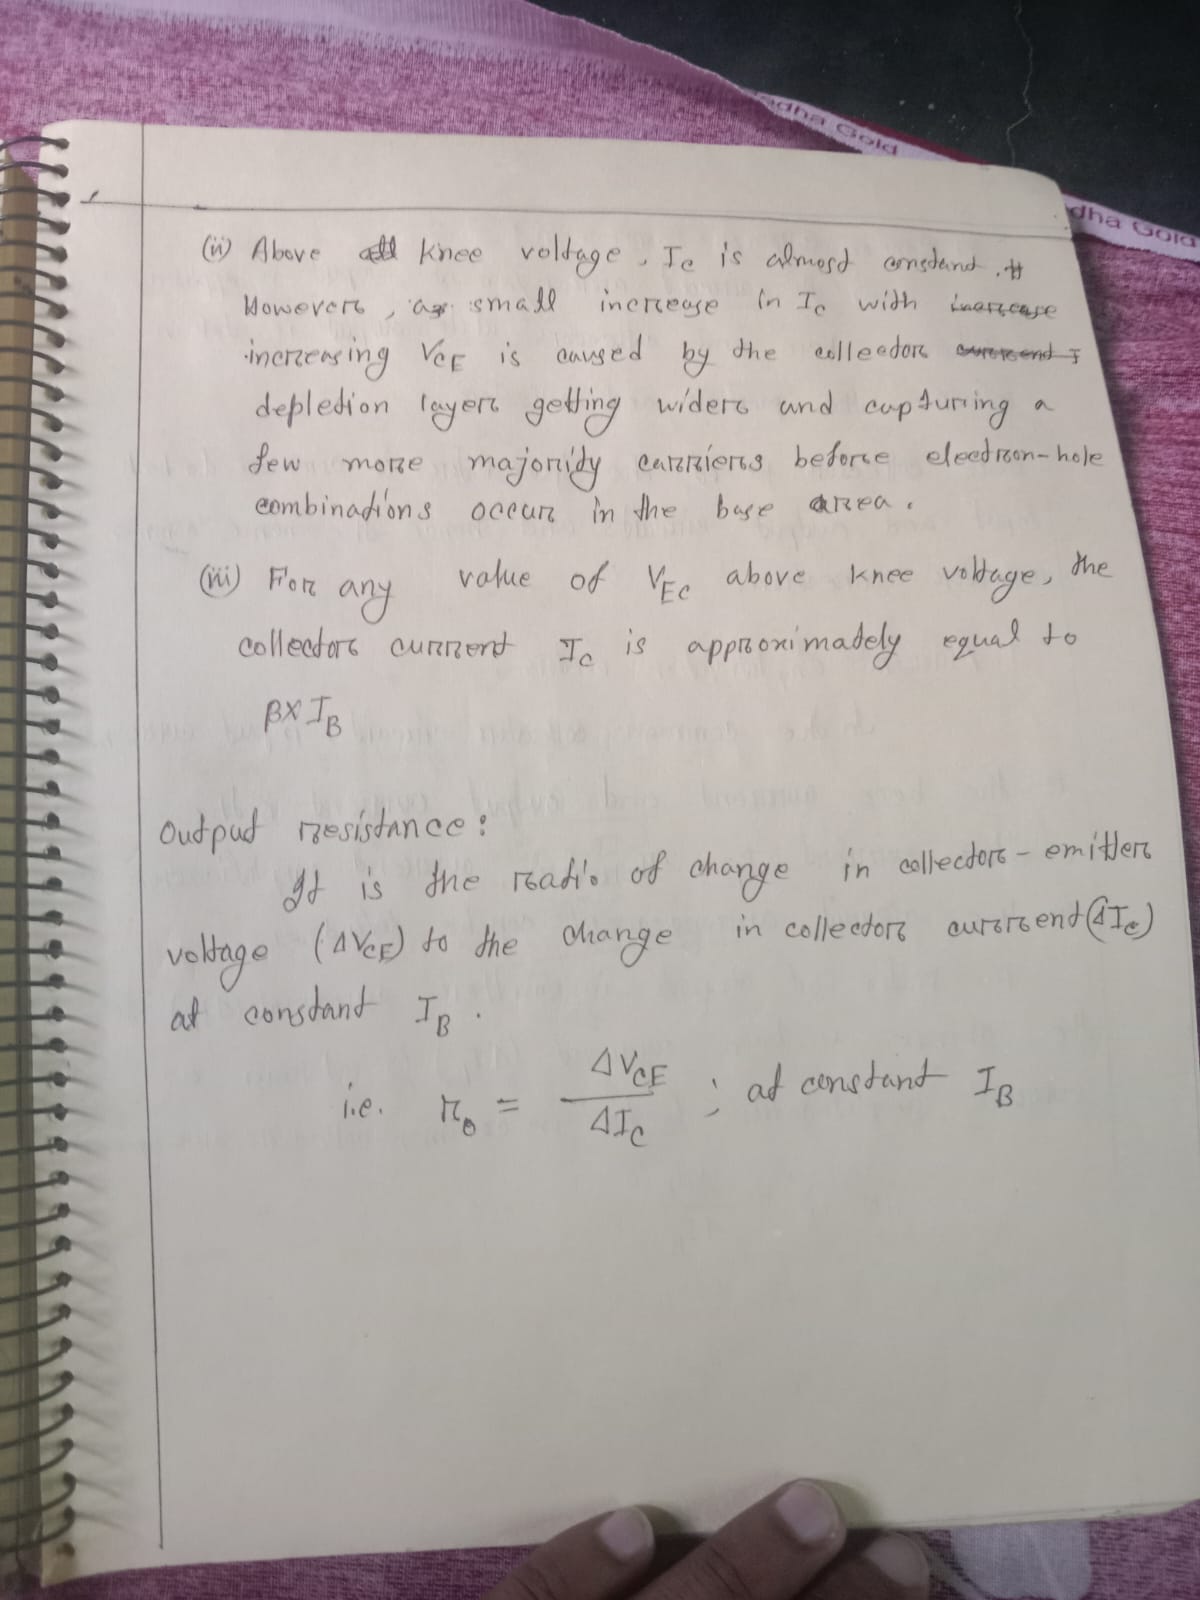 dha Gold
dha Gold
(ii) Above knee voltage, Ic is almost constand.
However, a small increase in Ic with increase
increasing VCE is caused by the collector current I
depletion layer getting wider and capturing a
few more majority carriers before electron-hole
combinations occur in the base area.
(iii) For any value of VEC above knee voltage, the
collector current Ic is approximately equal to
β× IB
Output resistance:
It is the ratio of change in collector-emitter
voltage (ΔVCE) to the change in collector current (ΔIc)
at constant IB.
i.e. r0 = ΔVCE / ΔIC ; at constant IB